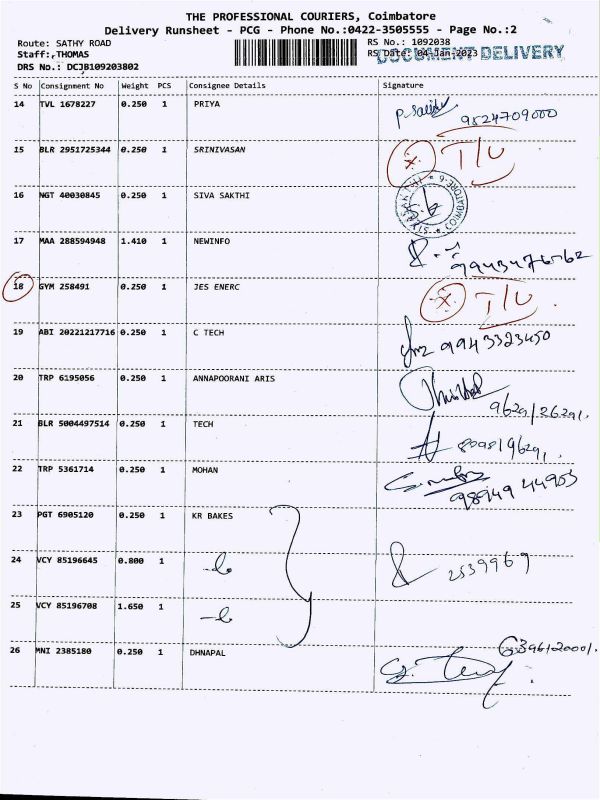 THE PROFESSIONAL COURIERS, Coimbatore
Delivery Runsheet - PCG - Phone No.:0422-3505555 - Page No.:2
Route: SATHY ROAD
RS No.: 1092038
Staff:,THOMAS
RS Date: 04-Jan-2023
DOCUMENT DELIVERY
DRS No.: DCJB109203802
S No Consignment No Weight PCS Consignee Details Signature
14 TVL 1678227 0.250 1 PRIYA
9524709000
15 BLR 2951725344 0.250 1 SRINIVASAN T/U
16 NGT 40030845 0.250 1 SIVA SAKTHI
COIMBATORE-6
17 MAA 288594948 1.410 1 NEWINFO
18 GYM 258491 0.250 1 JES ENERC T/U
19 ABI 20221217716 0.250 1 C TECH
9943323450
20 TRP 6195056 0.250 1 ANNAPOORANI ARIS
9629126291.
21 BLR 5004497514 0.250 1 TECH
22 TRP 5361714 0.250 1 MOHAN
98949 44903
23 PGT 6905120 0.250 1 KR BAKES
24 VCY 85196645 0.800 1
2539969
25 VCY 85196708 1.650 1
26 MNI 2385180 0.250 1 DHNAPAL